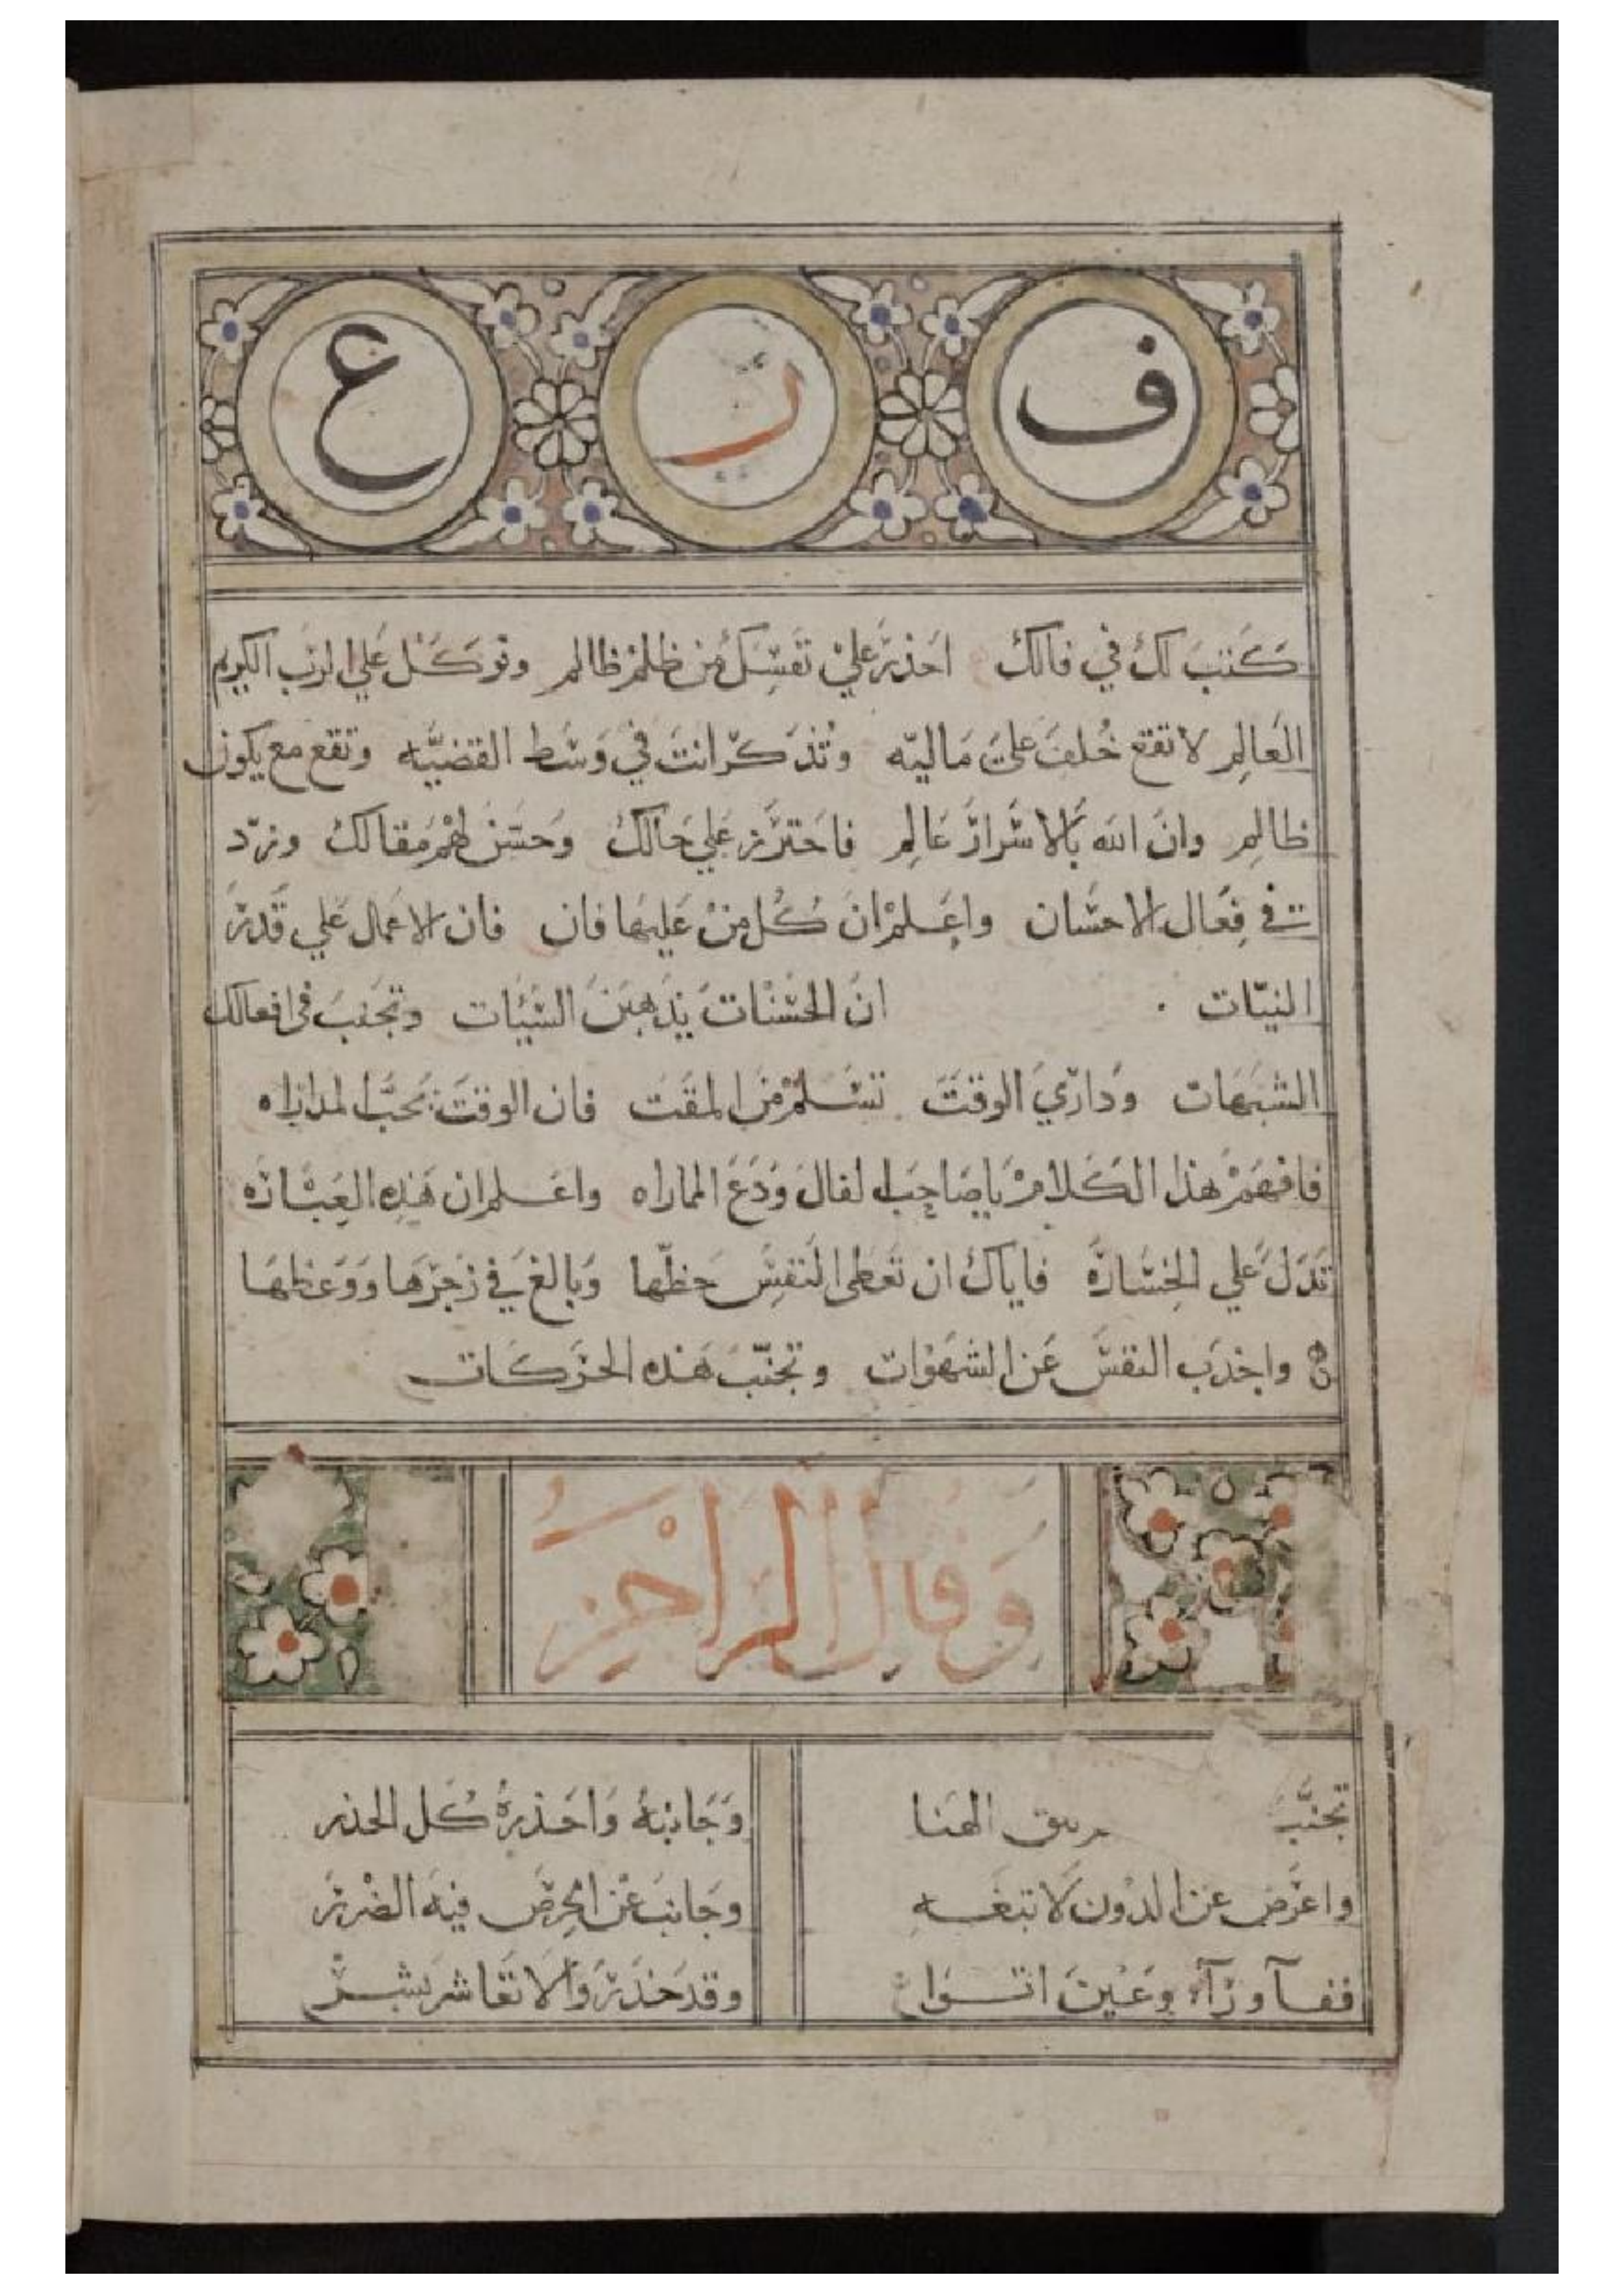 ف ر ع
كتب لك في فالك احذر علي نفسك من ظلم ظالم وتوكل علي الرب الكريم
العالم لا تقع خلف علي ماليه وتذكر انت في وسط القضيه وتقع مع يكون
ظالم وان الله بالاسرار عالم فاحترز علي حالك وحسن لهم مقالك وزد
في فعال الاحسان واعلم ان كل من عليها فان فان الاعمال علي قدر
النيات ان الحسنات يذهبن السيئات وتجنب في افعالك
الشبهات وداري الوقت تسلم من المقت فان الوقت يحب المداراه
فافهم هذا الكلام يا صاحب الفال ودع المماراه واعلم ان هذه العباره
تدل علي الخساره فاياك ان تعطي النفس حظها وبالغ في زجرها ووعظها
واجذب النفس عن الشهوات وتجنب هذه الحركات
وقال الراجز
تجنب الهنا وجانبه واحذره كل الحذر
واعرض عن الدون لا تبتغه وجانب عن الحرص فيه الضرر
ففا ورآء وعين اتوا وقد حذر والا تعاشر بشر